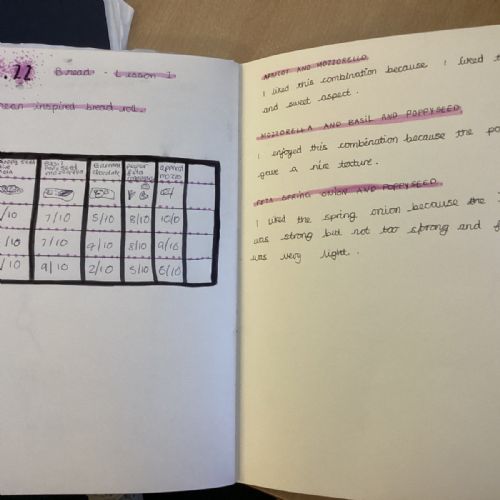 .22 Bread - Lesson 1
inspired bread roll
Basil
poppyseed
mozzarella
Banana
chocolate
feta
apricot
mozzo
/10 7/10 5/10 8/10 10/0
/10 7/10 4/10 8/10 9/10
/10 9/10 2/10 5/10 6/10
APRICOT AND MOZZORELLO
I liked this combination because I liked t
and sweet aspect.
MOZZORELLA AND BASIL AND POPPYSEED
I enjoyed this combination because the po
gave a nice texture.
FETA SPRING ONION AND POPPYSEED
I liked the spring onion because the
was strong but not too sprong and f
was very light.